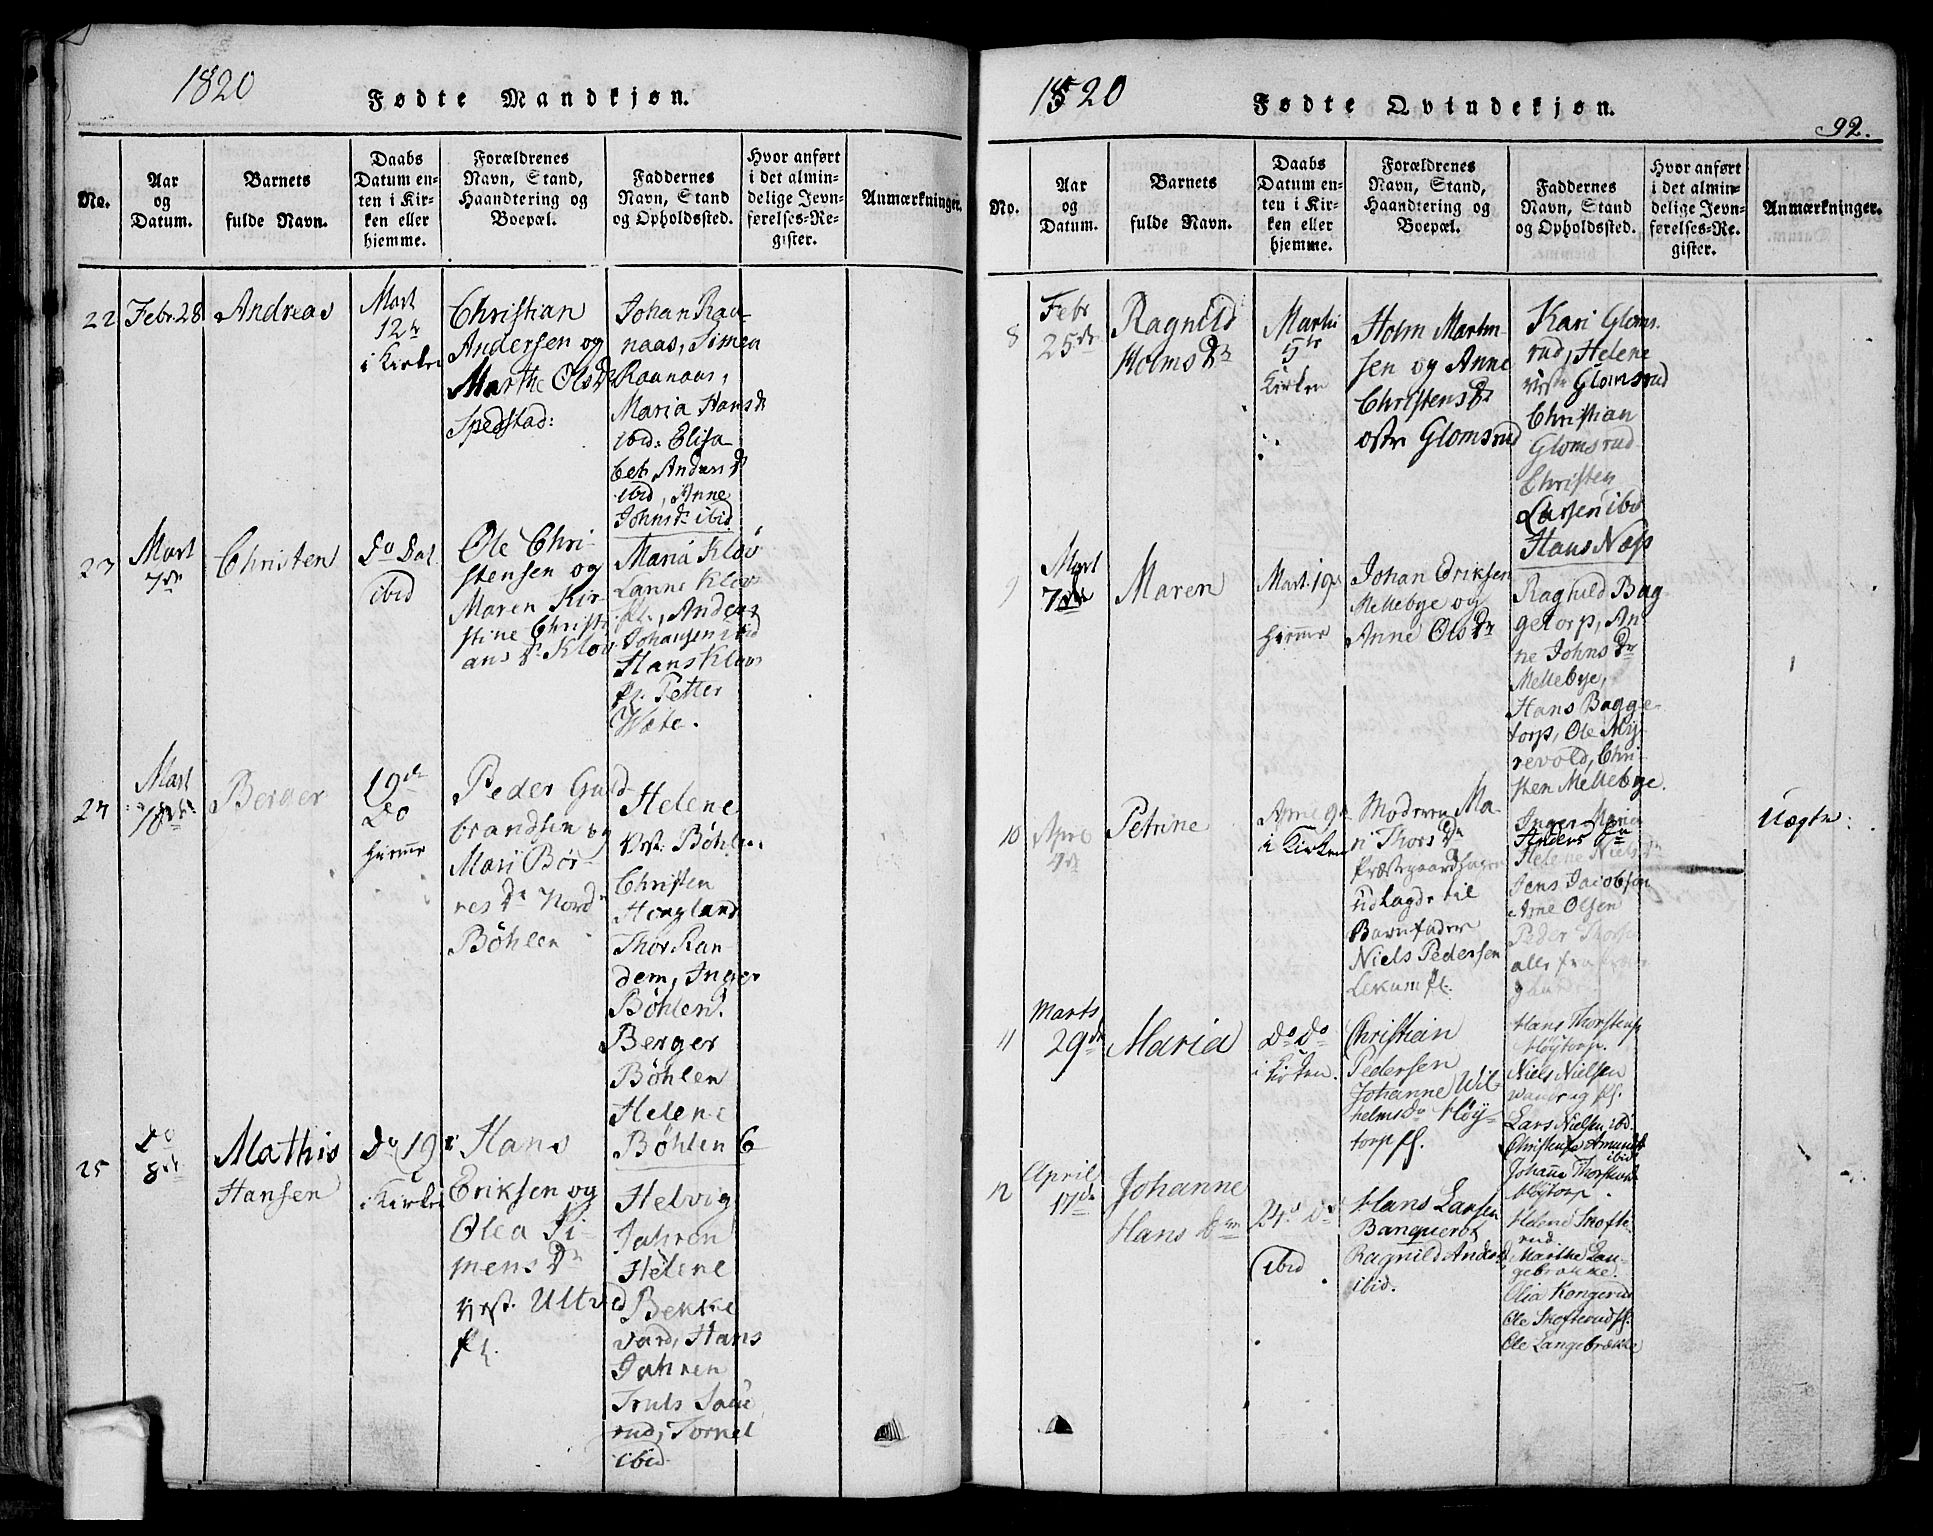 1820
Fødte Mandkjøn.
No.
Aar
og
Datum.
Barnets
fulde Navn.
Daabs
Datum en-
ten i Kir-
ken eller
hjemme.
Forældrenes
Navn, Stand,
Haandtering og
Boepæl.
Faddernes
Navn, Stand
og Opholdssted.
Hvor anført
i det almin-
delige Jevn-
førelses-Re-
gister.
Anmærkninger.
22
Febr. 28
Andreas
Mart
12te
i Kirken
Christian
Andersen og
Marthe Olsdr
Spedstad:
Johan Rau-
naas, Simen
Raanaas,
Maria Hansdr
ibid: Elisa
bet Andersdr
ibid, Anne
Johnsdr ibid
23
Mart
7de
Christen
Do Dat
ibid
Ole Chri-
stensen og
Maren Kir-
stine Christi
ansdr Kløv
Maria Kløv
Hans Kløv
pl. Petter
24
Mart
18de
Berger
19de
Do
hjemme
Peder Guld
brandsen og
Mari Bør-
resdr Nord
Bøhlen
Helene
Vest. Bøhlen
Christen
Hougland
Thor Ran-
dem, Inger
Bøhlen
Berger
Bøhlen
Helene
Bøhlen
25
Do
8de
Mathis
Hansen
Do 19
i Kirken
Hans
Eriksen og
Olea Si-
mensdr
Vest. Ultved
pl.
Helvig
Jahren
Helene
Bekke
vard, Hans
Jahren
Truls Saue
rud, Tornel
ibid
1820
Fødte Qvindekjøn.
92.
No.
Aar
og
Datum.
Barnets
fulde Navn.
Daabs
Datum en-
ten i Kir-
ken eller
hjemme.
Forældrenes
Navn, Stand,
Haandtering og
Boepæl.
Faddernes
Navn, Stand
og Opholdssted.
Hvor anført
i det almin-
delige Jevn-
førelses-Re-
gister.
Anmærkninger.
8
Febr
25de
Ragnild
Holmsdr
Marti
5te
Kirken
Holm Martin
sen og Anne
Christensdr
østre Glomsrud
Kari Gloms-
rud, Helene
vestr Glomsrud
Christian
Glomsrud
Christen
Larsen ibid
Hans Næss
9
Mart
7de
Maren
Mart. 19de
hjemme
Johan Eriksen
Mellebye og
Anne Olsdr
Ragnild Bag-
getorp, An
ne Johnsdr
Mellebye,
Hans Bagge-
torp, Ole Ny-
revold, Chri-
sten Mellebye.
10
Petrine
i Kirken
Moderen Ma-
ri Thorsdr
Præstegaardshagen
udlagde til
Barnefader
Niels Pedersen
Lekum pl.
Inger Maria
Andersdr
Helene Nielsdr
Jens Jacobsen
Arne Olsen
Peder Thorsen
alle fra
Uægte.
11
Marts
29de
Maria
Do Do
i Kirken.
Christian
Pedersen
Johanne Wil-
helmsdr Høy-
torp pl.
Hans Thorstens
Høytorp.
Niels Nielsen
pl.
Lars Nielsen ibd.
ibid
Høytorp
12
April
17de
Johanne
Hansdr
24de Do
ibid
Hans Larsen
Banquerot
Ragnild Andersdr
ibid.
Helene Skofte-
rud
Marthe Lan-
gebrække.
Olia Kongerud
Ole Skofterud pl.
Ole Langebrække